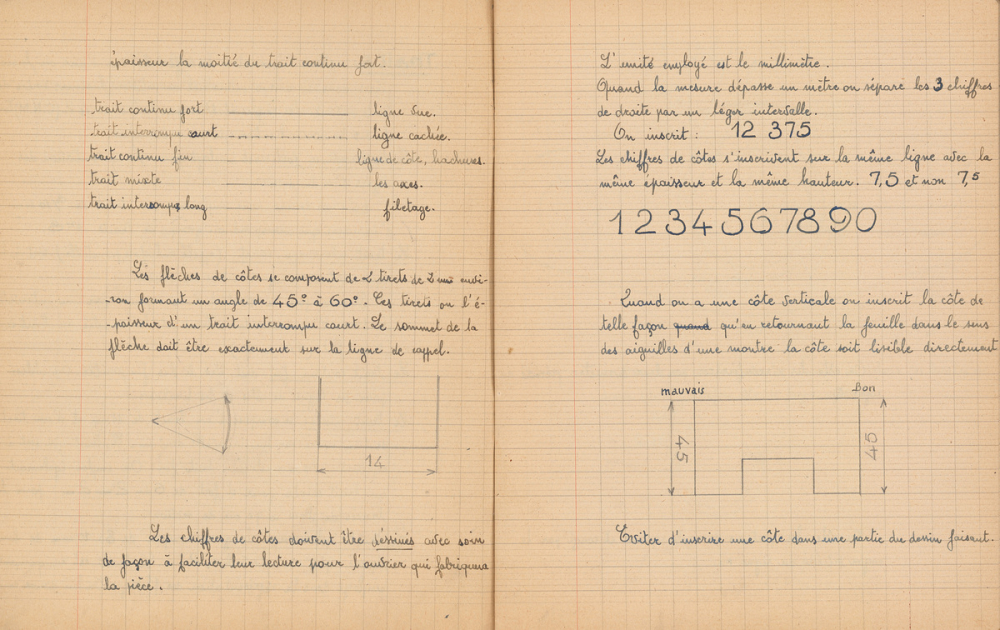 épaisseur la moitié du trait continu fort.
trait continu fort ligne vue.
trait interrompu court ligne cachée.
trait continu fin ligne de côte, hachures.
trait mixte les axes.
trait interrompu long filetage.
Les flèches de côtes se composent de 2 tirets de 2 mm envi-
-ron formant un angle de 45° à 60°. Ces tirets on l'é-
-paisseur d'un trait interrompu court. Le sommet de la
flèche doit être exactement sur la ligne de rappel.
14
Les chiffres de côtes doivent être dessinés avec soin
de façon à faciliter leur lecture pour l'ouvrier qui fabriquera
la pièce.
L'unité employé est le millimètre.
Quand la mesure dépasse un mètre on sépare les 3 chiffres
de droite par un léger intervalle.
On inscrit : 12 375
Les chiffres de côtes s'inscrivent sur la même ligne avec la
même épaisseur et la même hauteur. 7,5 et non 7,5
1 2 3 4 5 6 7 8 9 0
Quand on a une côte verticale on inscrit la côte de
telle façon quand qu'en retournant la feuille dans le sens
des aiguilles d'une montre la côte soit lisible directement
mauvais Bon
45 45
Eviter d'inscrire une côte dans une partie du dessin faisant.